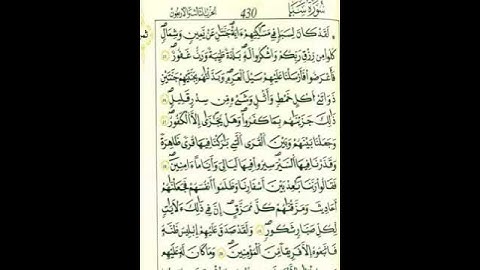 سُورَةُ سَبَإٍ 430 الحزب الثالث والأربعون
لَقَدْ كَانَ لِسَبَإٍ فِي مَسَٰكِنِهِمْ ءَايَةٌ جَنَّتَٰنِ عَنْ يَمِينٍ وَشِمَالٍ
كُلُوا مِن رِّزْقِ رَبِّكُمْ وَاشْكُرُوا لَهُ بَلْدَةٌ طَيِّبَةٌ وَرَبٌّ غَفُورٌ
فَأَعْرَضُوا فَأَرْسَلْنَا عَلَيْهِمْ سَيْلَ الْعَرِمِ وَبَدَّلْنَٰهُم بِجَنَّتَيْهِمْ جَنَّتَيْنِ
ذَوَاتَيْ أُكْلٍ خَمْطٍ وَأَثْلٍ وَشَيْءٍ مِّن سِدْرٍ قَلِيلٍ
ذَٰلِكَ جَزَيْنَٰهُم بِمَا كَفَرُوا وَهَلْ يُجَٰزَىٰ إِلَّا الْكَفُورُ
وَجَعَلْنَا بَيْنَهُمْ وَبَيْنَ الْقُرَى الَّتِي بَٰرَكْنَا فِيهَا قُرًى ظَٰهِرَةً
وَقَدَّرْنَا فِيهَا السَّيْرَ سِيرُوا فِيهَا لَيَالِيَ وَأَيَّامًا ءَامِنِينَ
فَقَالُوا رَبَّنَا بَٰعِدْ بَيْنَ أَسْفَارِنَا وَظَلَمُوا أَنفُسَهُمْ فَجَعَلْنَٰهُمْ
أَحَادِيثَ وَمَزَّقْنَٰهُمْ كُلَّ مُمَزَّقٍ إِنَّ فِي ذَٰلِكَ لَءَايَٰتٍ
لِّكُلِّ صَبَّارٍ شَكُورٍ وَلَقَدْ صَدَقَ عَلَيْهِمْ إِبْلِيسُ ظَنَّهُ
فَاتَّبَعُوهُ إِلَّا فَرِيقًا مِّنَ الْمُؤْمِنِينَ وَمَا كَانَ لَهُ عَلَيْهِم